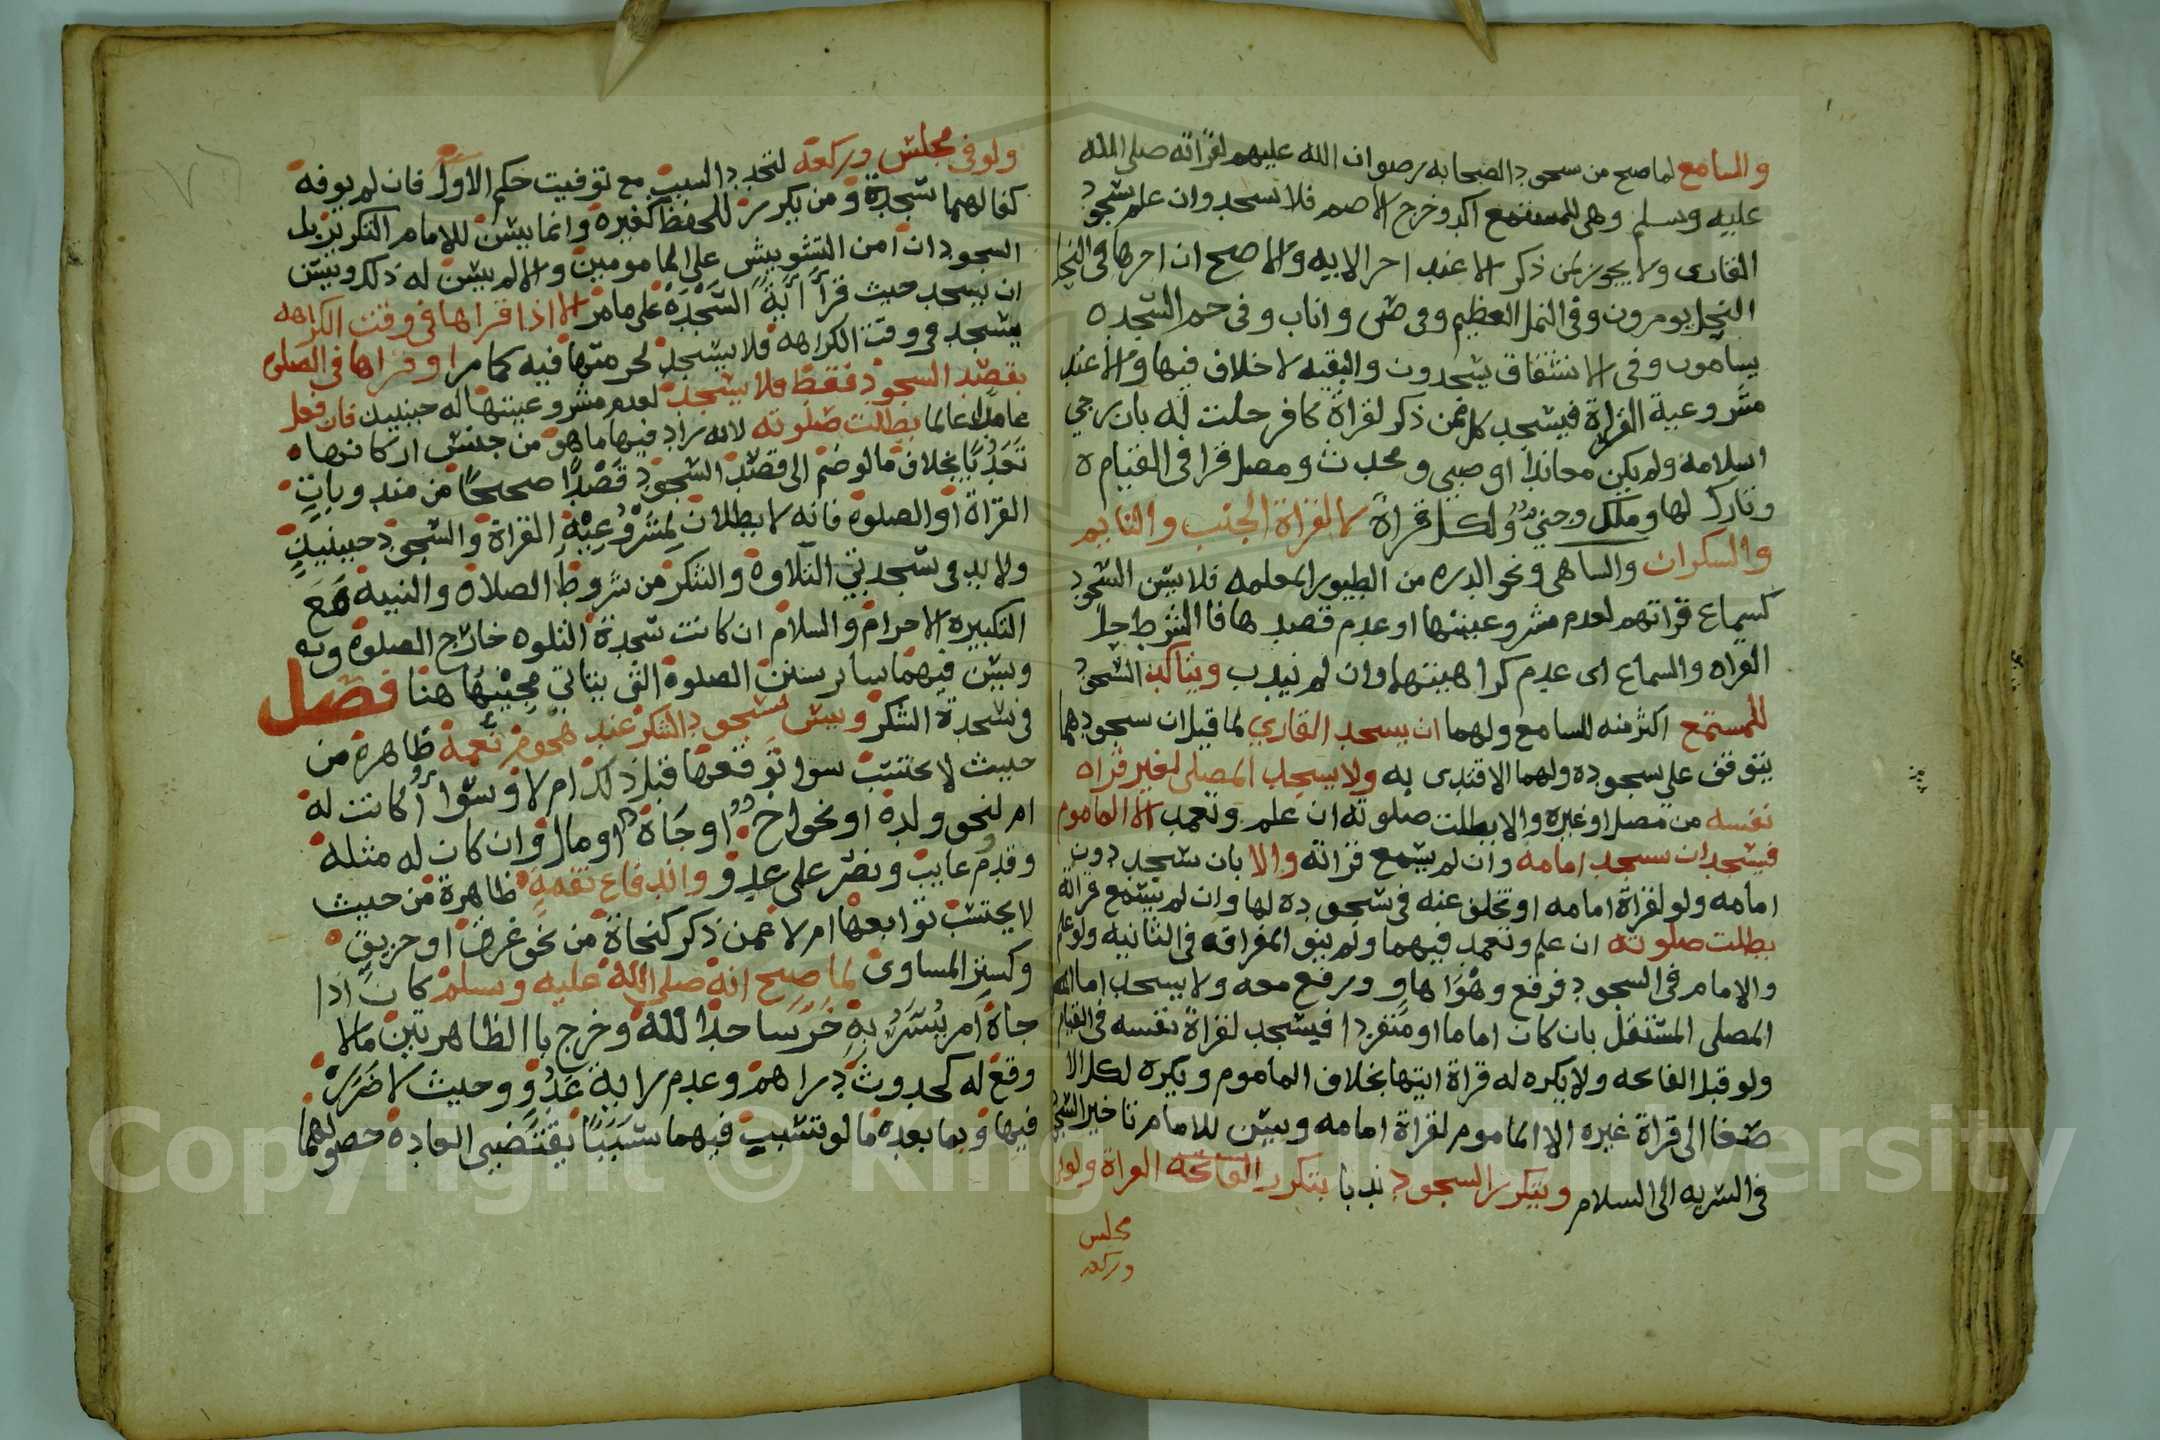 والسامع لما صح من سجود الصحابه رضوان الله عليهم لقرأته صلى الله
عليه وسلم وهى للمستمع اكد وخرج الاصم فلا يسجد وان علم بسجود
القارى ولا يجوز لمن ذكر الا عند اخر الايه والاصح ان اخرها فى النحل
النحل يومرون وفى النمل العظيم وفى ص واناب وفى حم السجده
يسأمون وفى الانشقاق يسجدون والبقيه لا خلاف فيها والا عند
مشروعية القراة فيسجد كل ممن ذكر لقراة كافر حلت له بان رجي
اسلامه ولم يكن معاندا او صبى ومحدث ومصل قرا فى القيام
وتارك لها وملك وجني ولكل قراة لا لقراة الجنب والنايم
والسكران والساهى ونحو الدره من الطيور المعلمه فلا يسن السجود
كسماع قراتهم لعدم مشروعيتها او عدم قصدها فا الشرط حل
القراه والسماع اى عدم كراهيتها وان لم نيدب ويتاكد السجود
للمستمع اكثر منه للسامع ولهما ان يسجد القاري لما قيل ان سجودهما
يتوقف على سجوده ولهما الاقتدى به ولا يسجد المصلى لغير قراه
نفسه من مصل او غيره والا بطلت صلوته ان علم وتعمد الا الماموم
فيسجد ان سجد امامه وان لم يسمع قراته والا بان سجد دون
امامه ولو لقراة امامه او تخلف عنه فى سجوده لها وان لم يسمع قراته
بطلت صلوته ان علم وتعمد فيهما ولم ينو المفراقه فى الثانيه ولو علم
والامام فى السجود فرفع وهو اهاو ورفع معه ولا يسجد اما
المصلى المستقل بان كان اماما او منفردا فيسجد لقراة نفسه فى القيام
ولو قبل الفاتحه ولا يكره له قراة ايتها بخلاف الماموم ويكره لكل الا
صغا الى قراة غيره الا الماموم لقراة امامه ويسن للامام تاخير السجود
فى السريه الى السلام ويتكرر السجود ندبا بتكرر الفاتحه القراة ولو
مجلس
وركعه
ولو فى مجلس وركعة لتجدد السبب مع توفيت حكم الاول فان لم يوفه
كفا لهما سجدة ومن يكرر للحفظ كغيره وانما يسن للامام التكرير بل
السجود ان امن التشويش على المامومين والا لم يسن له ذلك ويسن
ان يسجد حيث قرأ آية السجدة على ما مر الا اذا قراها فى وقت الكراهه
يسجد فى وقت الكراهه فلا يسجد لحرمتها فيه كما مر او قراها فى الصلوة
بقصد السجود فقط فلا يسجد لعدم مشروعيتها له حينيذ فان فعل
عامدا عالما بطلت صلوته لانه زاد فيها ما هو من جنس اركانها
تعديا بخلاف ما لو ضم الى قصد السجود قصدا صحيحا من مندوبات
القراة او الصلوة فانه لا بطلان لمشروعية القراة والسجود حينيذ
ولا بد فى سجدتي التلاوة والشكر من شروط الصلاة والنية مع
التكبيره الاحرام والسلام ان كانت سجدة التلوه خارج الصلوة وبه
ويسن فيهما ساير سنن الصلوة التى يتاتي مجيئها هنا فصل
فى سجدة الشكر ويسن سجود الشكر عند هجوم نعمة ظاهرة من
حيث لا يحتسب سوا توقعها قبل ذلك ام لا وسوا أكانت له
ام لنحو ولده او نحو اخ او جاه او مال وان كان له مثله
وقدوم غايب ونصر على عدو واندفاع نقمة ظاهرة من حيث
لا يحتسب توابعها ام لا عمن ذكر كنجاة من نحو غرق او حريق
وكستر المساوى لما صح انه صلى الله عليه وسلم كان اذا
جاءه امر يسر به خر ساجدا لله وخرج با الظاهرتين ما لا
وقع له كحدوث دراهم وعدم راية عدو وحيث لا ضرر
فيها وبما بعده ما لو تسبب فيهما سببا يقتضى العادة حصولهما